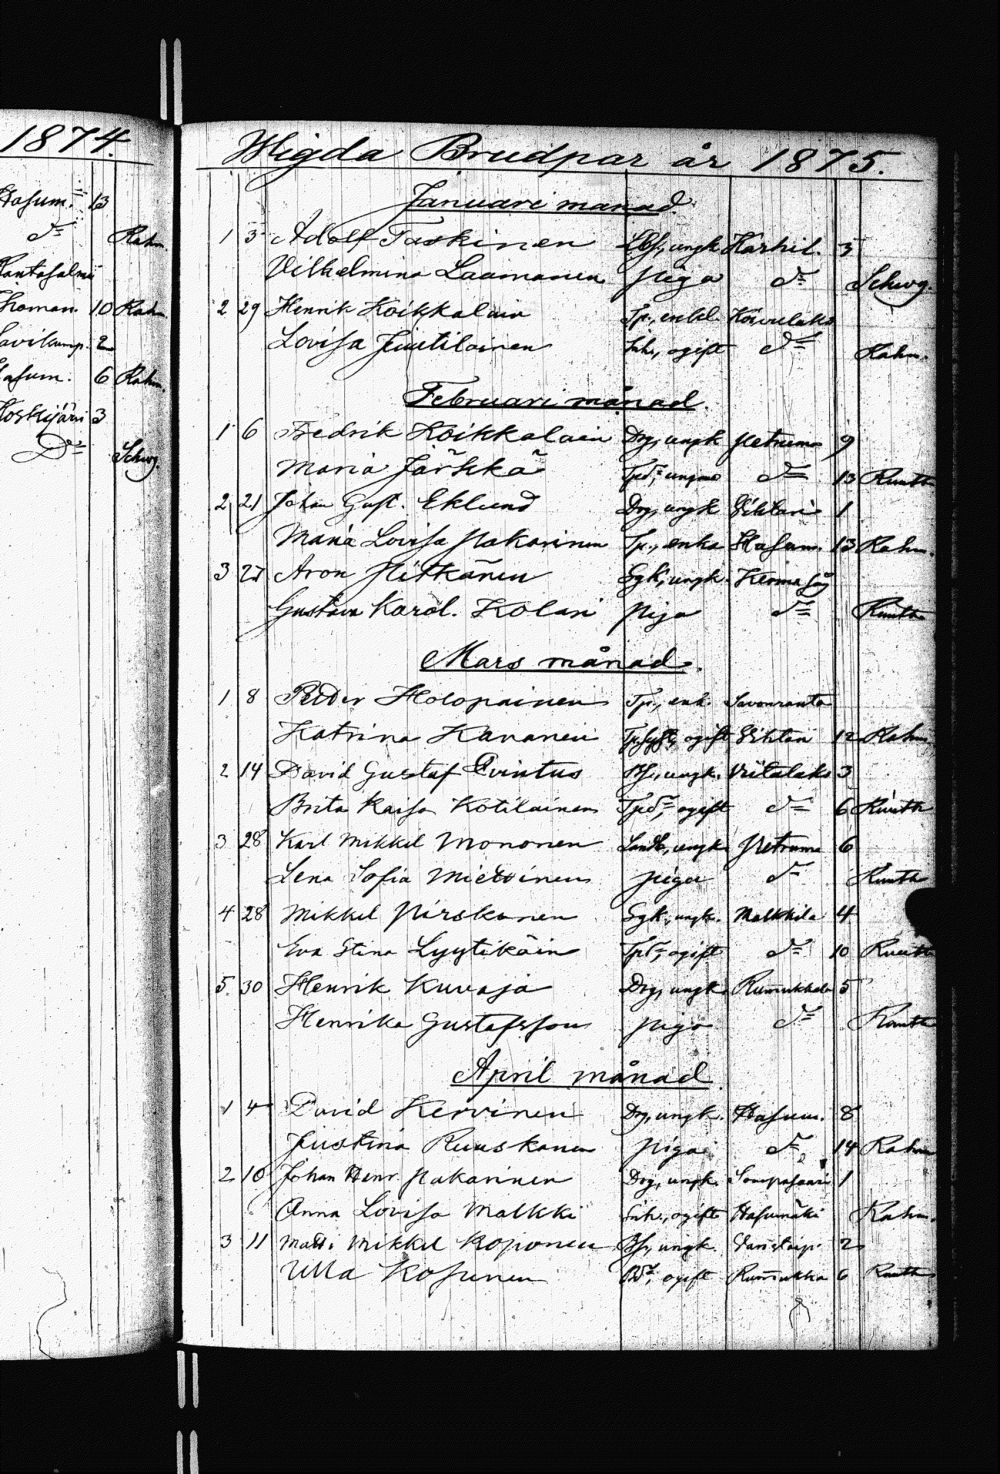 1874.
Hasum. 13
d:o Rahm.
Rantasalmi
10 Rahm.
2
Hasum. 6 Rahm.
Koskijärvi 3
D:o Schwg.
Wigda Brudpar år 1875.
Januari månad.
1 3 Adolf Taskinen ungk. Karhil. 3
Vilhelmina Laamanen piga d:o Schwg.
2 29 Henrik Koikkalain Tp., enkl.
Lovisa Juutilainen Inh., ogift d:o Rahm.
Februari månad.
1 6 Fredrik Koikkalain Drg, ungk Petruma 9
Maria Jäskkä d:o 13 Ruuth
2 21 Johan Gust. Eklund Drg, ungk Vihtari 1
Maria Lovisa Pakarinen Tp., enka Hasum. 13 Rahm.
3 27 Aron Pitkänen Sgk, ungk. Kerma såg
Gustava Karol. Kolari piga d:o Ruuth
Mars månad.
1 8 Peder Holopainen Tp., enk. Savonranta
Katrina Kananen ogift Vihtari 12 Rahm.
2 14 David Gustaf Qvintus Bs., ungk. 3
Brita Kaisa Kotilainen ogift d:o 6 Ruuth
3 28 Karl Mikkel Mononen ungk Petruma 6
Lena Sofia Miettinen piga d:o Ruuth
4 28 Mikkel Pirskanen Sgk., ungk. Malkkila 4
Eva Stina Lyytikäin ogift d:o 10 Ruuth
5. 30 Henrik Kuvaja Drg, ungk. 5
Henrika Gustafsson piga d:o Ruuth
April månad.
1 4 David Kervinen Drg, ungk. Hasum. 8
Justina Ruuskanen piga d:o 14 Rahm
2 10 Johan Henr. Pakarinen Drg, ungk. Sompasaari 1
Anna Lovisa Malkki Inh., ogift Hasumäki Rahm.
3 11 Matts Mikkel Koponen Bs., ungk. 2
Ulla Kosunen ogift 6 Ruuth